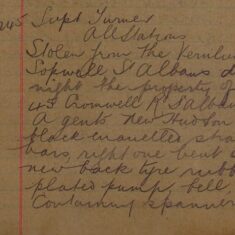 245 Supt Turner
All Stations
Stolen from the
Sopwell St Albans d
night the property of
43 Cromwell Rd St Alban
A gents new Hudson
black enamelled stra
bars, right one bent
new back tyre rubb
plated pump, bell,
Containing spanner